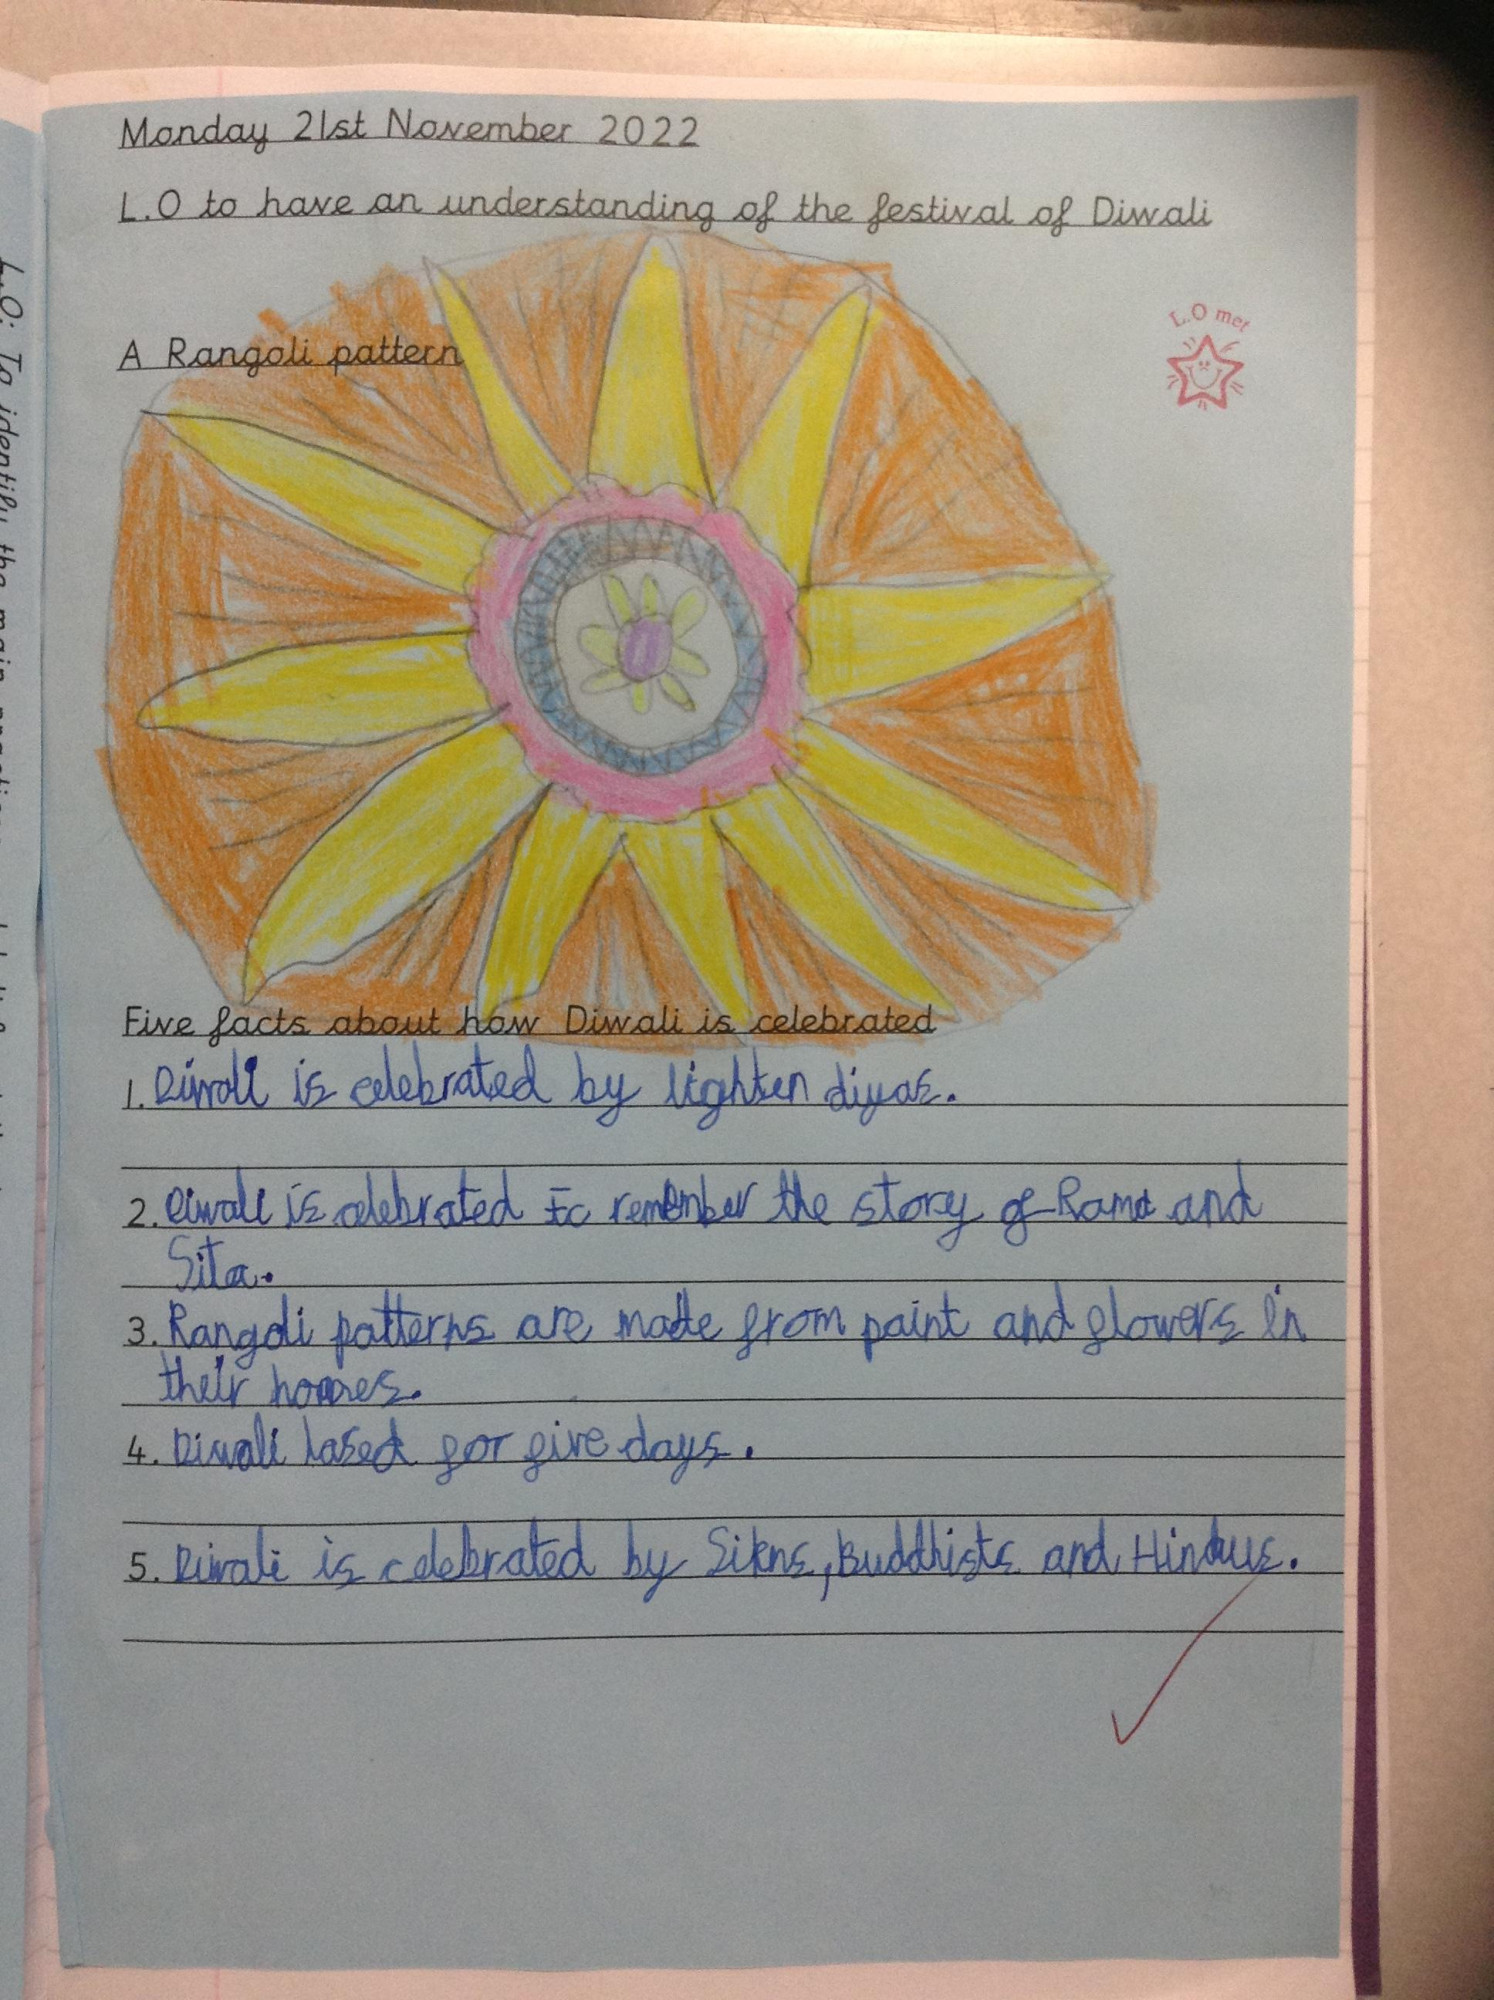 Monday 21st November 2022
L.O to have an understanding of the festival of Diwali
L.O met
A Rangoli pattern
Five facts about how Diwali is celebrated
1. Diwali is celebrated by lighten diyas.
2. Diwali is celebrated to remember the story of Rama and
Sita.
3. Rangoli patterns are made from paint and flowers in
their homes.
4. Diwali lased for five days.
5. Diwali is celebrated by Sikhs, Buddhists and Hindus.
L.O: To identify the main